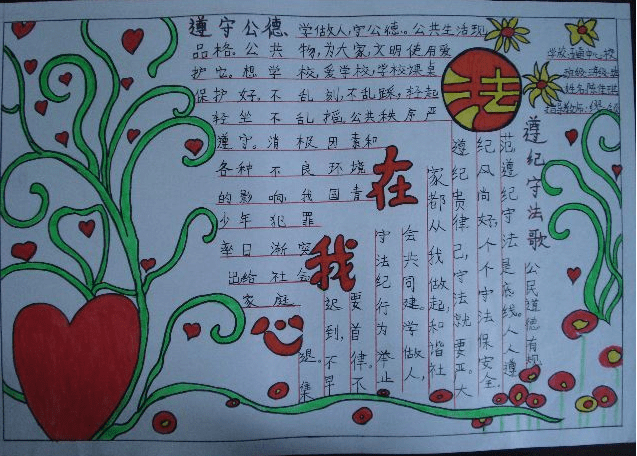 遵守公德、学做人,守公德。公共生活现
品格。公共物,为大家,文明使用爱
护它。想学校,爱学校,学校课桌
保护好。不乱刻,不乱踩,轻起
轻坐不乱摇。公共秩序严
遵守。消极因素和
各种不良环境
的影响,我国青
少年犯罪
率日渐突
出给社会
家庭
法
在
我
心
遵纪守法歌
公民道德有规
范遵纪守法是底线。人人遵
纪风尚好,个个守法保安全
遵纪贵律己,守法就要正。大
家都从我做起,和谐社
会共同建。学做人,
守法纪行为举止
要首律。不
迟到,不早
退。集